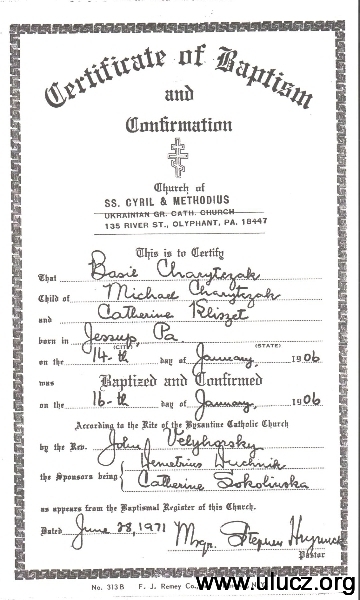 Certificate of Baptism
and
Confirmation
Church of
SS. CYRIL & METHODIUS
UKRAINIAN GR. CATH. CHURCH
135 RIVER ST., OLYPHANT, PA. 18447
This is to Certify
That Basil Charytczak
Child of Michael Charytczak
and Catherine Kliszet
born in Jessup, Pa.
(CITY) (STATE)
on the 14-th day of January, 1906
was Baptized and Confirmed
on the 16-th day of January, 1906
According to the Rite of the Byzantine Catholic Church
by the Rev. John Velyhorsky
the Sponsors being Demetrius Duchnik
Catherine Sokolinska
as appears from the Baptismal Register of this Church.
Dated June 28, 1971 Msgr. Stephen
Pastor
No. 313B F. J. Remey Co.,
www.ulucz.org